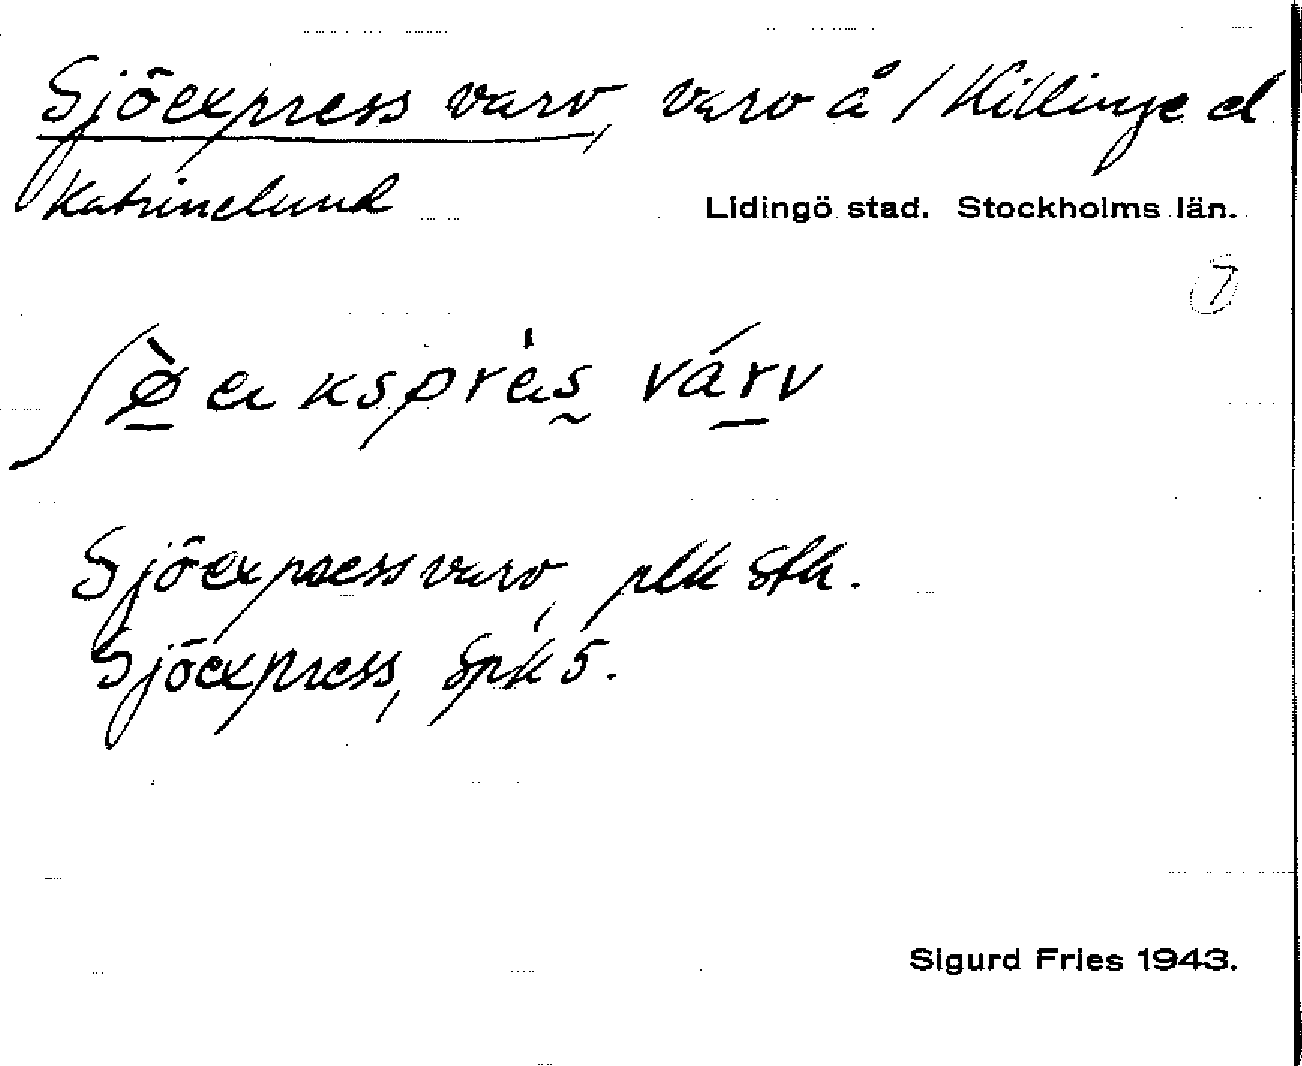 Sjöexpress varv, varv å / Killinge el
Katrinelund
Lidingö stad. Stockholms län.
7
ʃø̀ eksprès várv
Sjöexpressvarv, plk Sth.
Sjöexpress, Spk 5.
Sigurd Fries 1943.